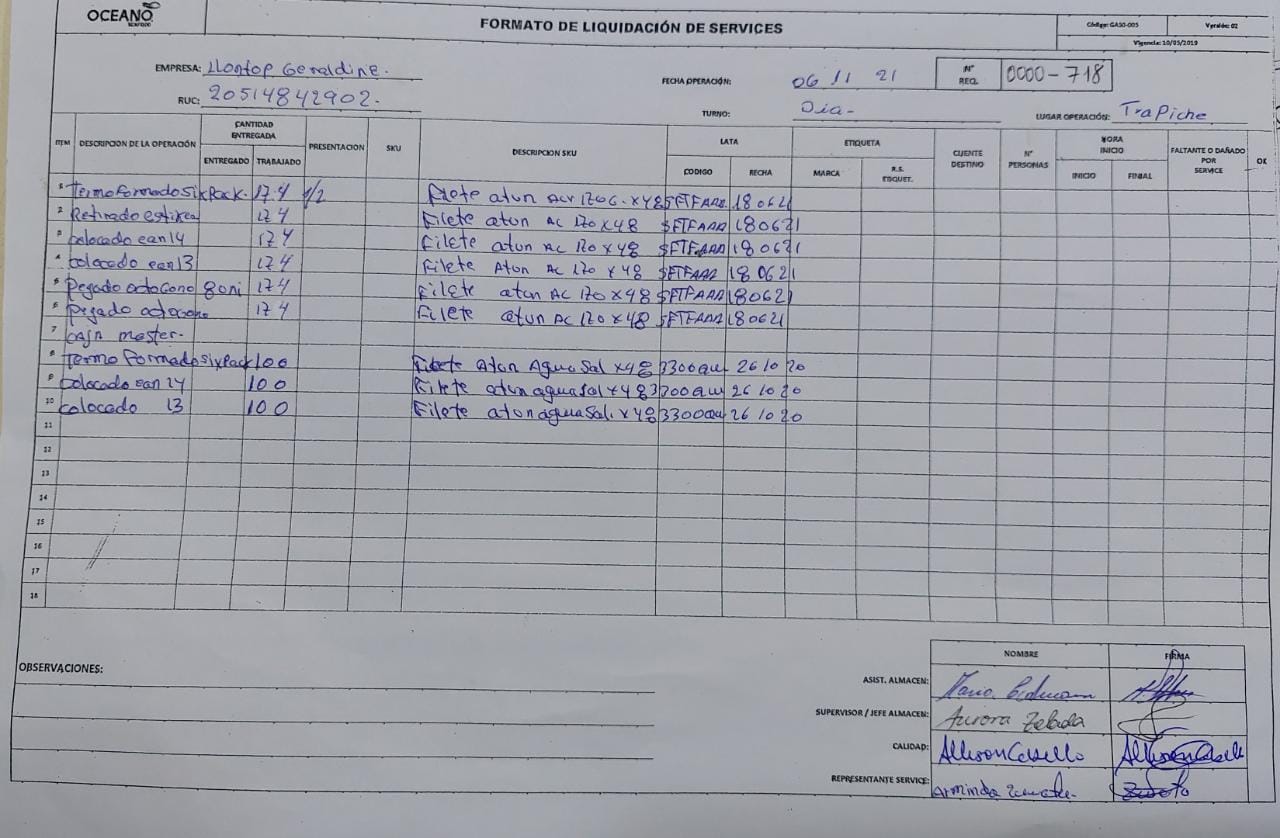 OCEANO SEAFOOD
FORMATO DE LIQUIDACIÓN DE SERVICES
Código: GASO-005 Versión: 02
Vigencia: 10/05/2019
EMPRESA: Llontop Geraldine.
FECHA OPERACIÓN: 06 11 21
N° REQ. 0000-718
RUC: 20514842902.
TURNO: Dia-
LUGAR OPERACIÓN: TraPiche
ITEM DESCRIPCION DE LA OPERACIÓN CANTIDAD ENTREGADA PRESENTACION SKU DESCRIPCION SKU LATA ETIQUETA CLIENTE DESTINO N° PERSONAS HORA INICIO FALTANTE O DAÑADO POR SERVICE OK
ENTREGADO TRABAJADO CODIGO FECHA MARCA R.S. ETIQUET. INICIO FINIAL
1 Termoformado sixPack. 174 1/2 Filete atun ACV 170G. x48 SFTFAAA 180621
2 Retirado estikea 174 Filete atun AC 170x48 SFTFAAA 180621
3 colocado ean14 174 Filete atun AC 170x48 SFTFAAA 180621
4 colocado ean13 174 Filete Atun AC 170 x48 SFTFAAA 180621
5 Pegado octocono 174 Filete atun AC 170x48 SFTFAAA 180621
6 Pegado octocono 174 Filete atun AC 170x48 SFTFAAA 180621
7 caja master.
8 Termo Formado sixPack 100 Filete Atun Agua Sal x48 3300qw 26 10 20
9 colocado ean 14 100 Filete atun agua sal x48 3300qw 26 10 20
10 colocado 13 100 Filete atun agua Sal. x48 3300qw 26 10 20
11
12
13
14
15
16
17
18
OBSERVACIONES:
NOMBRE FIRMA
ASIST. ALMACEN: Mario
SUPERVISOR / JEFE ALMACEN: Aurora Zelada
CALIDAD: Allison
REPRESENTANTE SERVICE: Arminda